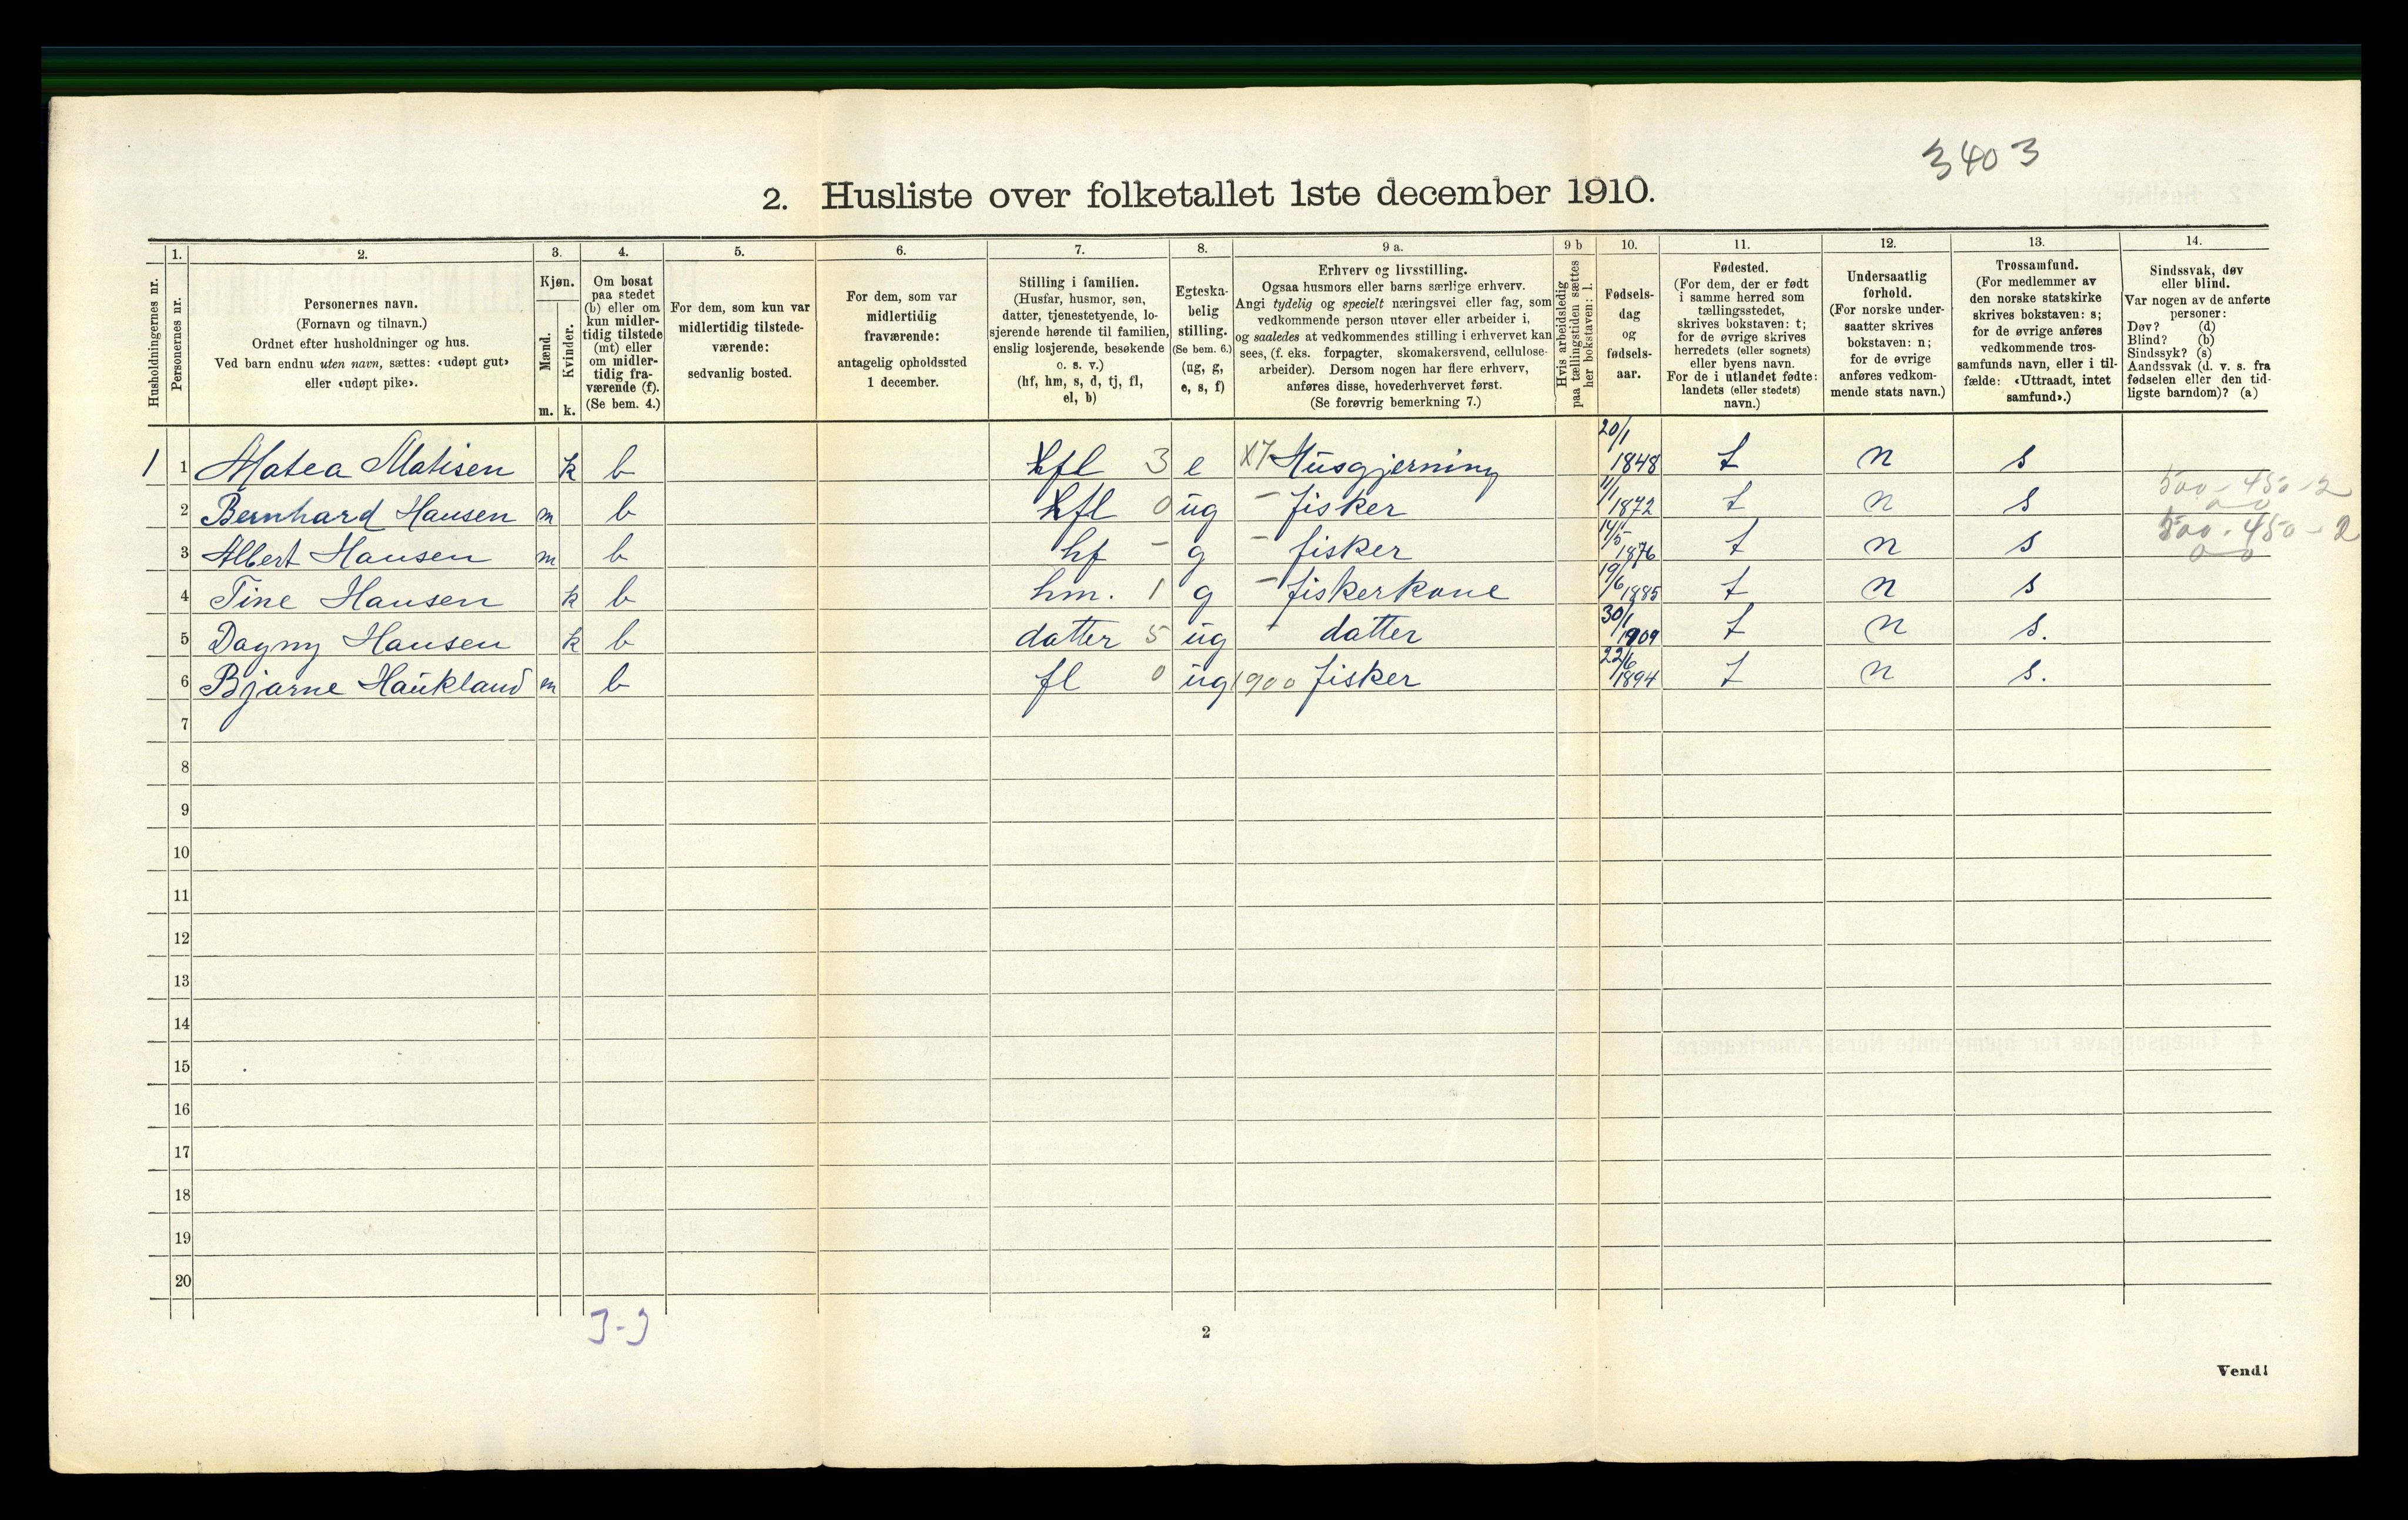 3403
2. Husliste over folketallet 1ste december 1910.
Husholdningernes nr.
1.
Personernes nr.
2.
Personernes navn.
(Fornavn og tilnavn.)
Ordnet efter husholdninger og hus.
Ved barn endnu uten navn, sættes: «udøpt gut»
eller «udøpt pike».
3.
Kjøn.
Mænd.
Kvinder.
m. k.
4.
Om bosat
paa stedet
(b) eller om
kun midler-
tidig tilstede
(mt) eller
om midler-
tidig fra-
værende (f).
(Se bem. 4.)
5.
For dem, som kun var
midlertidig tilstede-
værende:
sedvanlig bosted.
6.
For dem, som var
midlertidig
fraværende:
antagelig opholdssted
1 december.
7.
Stilling i familien.
(Husfar, husmor, søn,
datter, tjenestetyende, lo-
sjerende hørende til familien,
enslig losjerende, besøkende
o. s. v.)
(hf, hm, s, d, tj, fl,
el, b)
8.
Egteska-
belig
stilling.
(Se bem. 6.)
(ug, g,
e, s, f)
9 a.
Erhverv og livsstilling.
Ogsaa husmors eller barns særlige erhverv.
Angi tydelig og specielt næringsvei eller fag, som
vedkommende person utøver eller arbeider i,
og saaledes at vedkommendes stilling i erhvervet kan
sees, (f. eks. forpagter, skomakersvend, cellulose-
arbeider). Dersom nogen har flere erhverv,
anføres disse, hovederhvervet først.
(Se forøvrig bemerkning 7.)
9 b
Hvis arbeidsledig
paa tællingstiden sættes
her bokstaven: l.
10.
Fødsels-
dag
og
fødsels-
aar.
11.
Fødested.
(For dem, der er født
i samme herred som
tællingsstedet,
skrives bokstaven: t;
for de øvrige skrives
herredets (eller sognets)
eller byens navn.
For de i utlandet fødte:
landets (eller stedets)
navn.)
12.
Undersaatlig
forhold.
(For norske under-
saatter skrives
bokstaven: n;
for de øvrige
anføres vedkom-
mende stats navn.)
13.
Trossamfund.
(For medlemmer av
den norske statskirke
skrives bokstaven: s;
for de øvrige anføres
vedkommende tros-
samfunds navn, eller i til-
fælde: «Uttraadt, intet
samfund».)
14.
Sindssvak, døv
eller blind.
Var nogen av de anførte
personer:
Døv? (d)
Blind? (b)
Sindssyk? (s)
Aandssvak (d. v. s. fra
fødselen eller den tid-
ligste barndom)? (a)
1 1 Matea Matisen k b fl 3 e X7 Husgjerning 20/1 1848 t n s
2 Bernhard Hansen m b fl 0 ug - fisker 11/1 1872 t n s 500-450-2
3 Albert Hansen m b hf - g - fisker 14/5 1876 t n s 500-450-2
4 Tine Hansen k b hm. 1 g - fiskerkone 19/6 1885 t n s
5 Dagny Hansen k b datter 5 ug - datter 30/1 1909 t n s.
6 Bjarne Haukland m b fl 0 ug 1900 fisker 22/6 1894 t n s.
7
8
9
10
11
12
13
14
15
16
17
18
19
20
3-3
2
Vend!